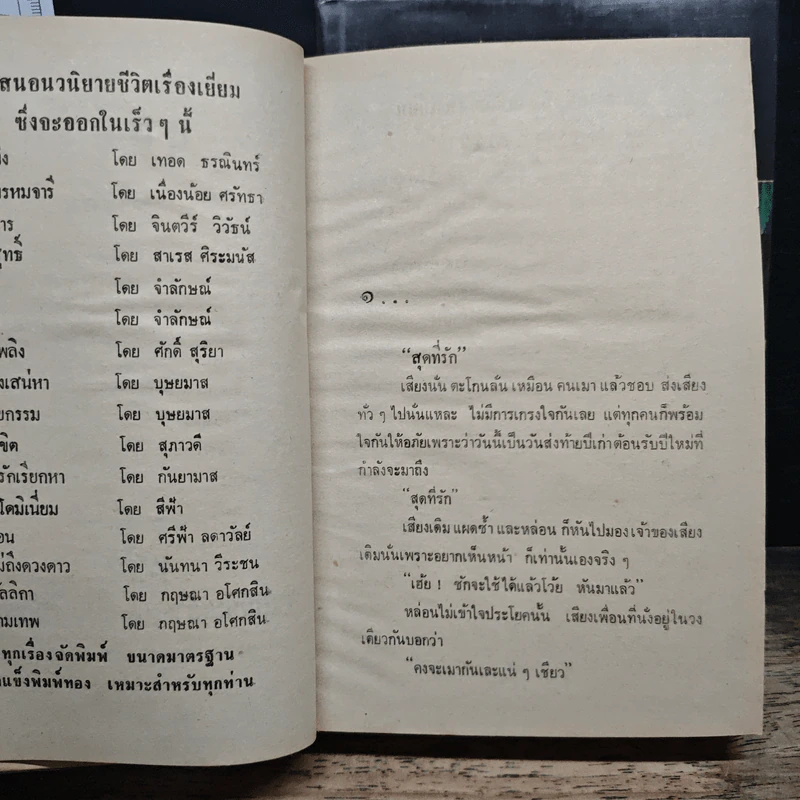 สนอนวนิยายชีวิตเรื่องเยี่ยม
ซึ่งจะออกในเร็ว ๆ นี้
โดย เทอด ธรณินทร์
รหมจารี โดย เนื่องน้อย ศรัทธา
าร โดย จินตวีร์ วิวัธน์
ุทธิ์ โดย สาเรส ศิระมนัส
โดย จำลักษณ์
โดย จำลักษณ์
พลิง โดย ศักดิ์ สุริยา
งเสน่หา โดย บุษยมาส
ยกรรม โดย บุษยมาส
ขิต โดย สุภาวดี
รักเรียกหา โดย กันยามาส
โดมิเนี่ยม โดย สีฟ้า
อน โดย ศรีฟ้า ลดาวัลย์
ม่ถึงดวงดาว โดย นันทนา วีระชน
ัลลิกา โดย กฤษณา อโศกสิน
ามเทพ โดย กฤษณา อโศกสิน
ทุกเรื่องจัดพิมพ์ ขนาดมาตรฐาน
แข็งพิมพ์ทอง เหมาะสำหรับทุกท่าน
๑...
“สุดที่รัก”
เสียงนั่น ตะโกนลั่น เหมือน คนเมา แล้วชอบ ส่งเสียง
ทั่ว ๆ ไปนั่นแหละ ไม่มีการเกรงใจกันเลย แต่ทุกคนก็พร้อม
ใจกันให้อภัยเพราะว่าวันนี้เป็นวันส่งท้ายปีเก่าต้อนรับปีใหม่ที่
กำลังจะมาถึง
“สุดที่รัก”
เสียงเดิม แผดซ้ำ และหล่อน ก็หันไปมอง เจ้าของเสียง
เดิมนั่นเพราะอยากเห็นหน้า ก็เท่านั้นเองจริง ๆ
“เฮ้ย ! ชักจะใช้ได้แล้วโว้ย หันมาแล้ว”
หล่อนไม่เข้าใจประโยคนั้น เสียงเพื่อนที่นั่งอยู่ในวง
เดียวกันบอกว่า
“คงจะเมากันเละแน่ ๆ เชียว”